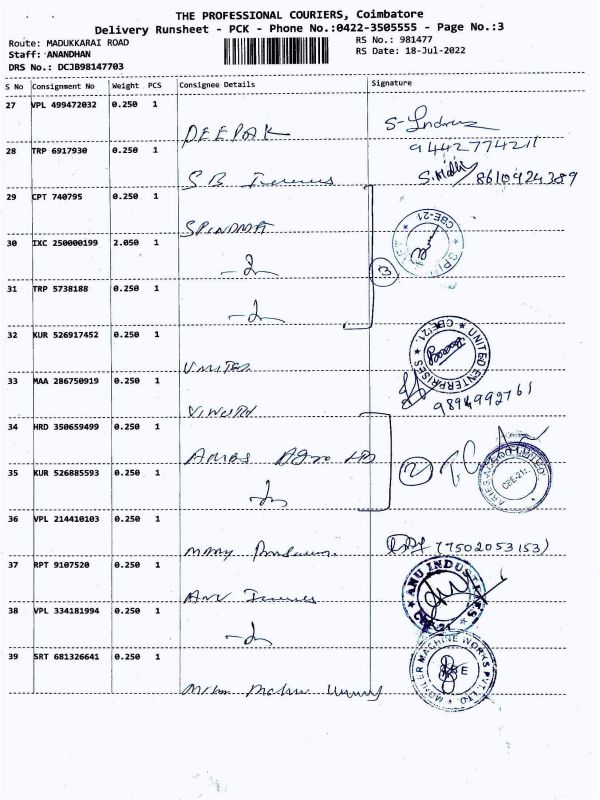 THE PROFESSIONAL COURIERS, Coimbatore
Delivery Runsheet - PCK - Phone No.:0422-3505555 - Page No.:3
Route: MADUKKARAI ROAD
RS No.: 981477
Staff: ANANDHAN
RS Date: 18-Jul-2022
DRS No.: DCJB98147703
S No Consignment No Weight PCS Consignee Details Signature
27 VPL 499472032 0.250 1
DEEPAK
9442774211
28 TRP 6917930 0.250 1
S B
8610924389
29 CPT 740795 0.250 1
CBE-21
30 IXC 250000199 2.050 1
3
31 TRP 5738188 0.250 1
32 KUR 526917452 0.250 1
UNITED
UNITED ENTERPRISES CBE-21.
33 MAA 286750919 0.250 1
9894992761
34 HRD 350659499 0.250 1
Aries Agro LTD
2
35 KUR 526885593 0.250 1
ARIES AGRO LIMITED
CBE-21.
36 VPL 214410103 0.250 1
(7502053153)
37 RPT 9107520 0.250 1
Anu
ANU INDUSTRIES
38 VPL 334181994 0.250 1
39 SRT 681326641 0.250 1
MOHLER MACHINE WORKS PVT. LTD